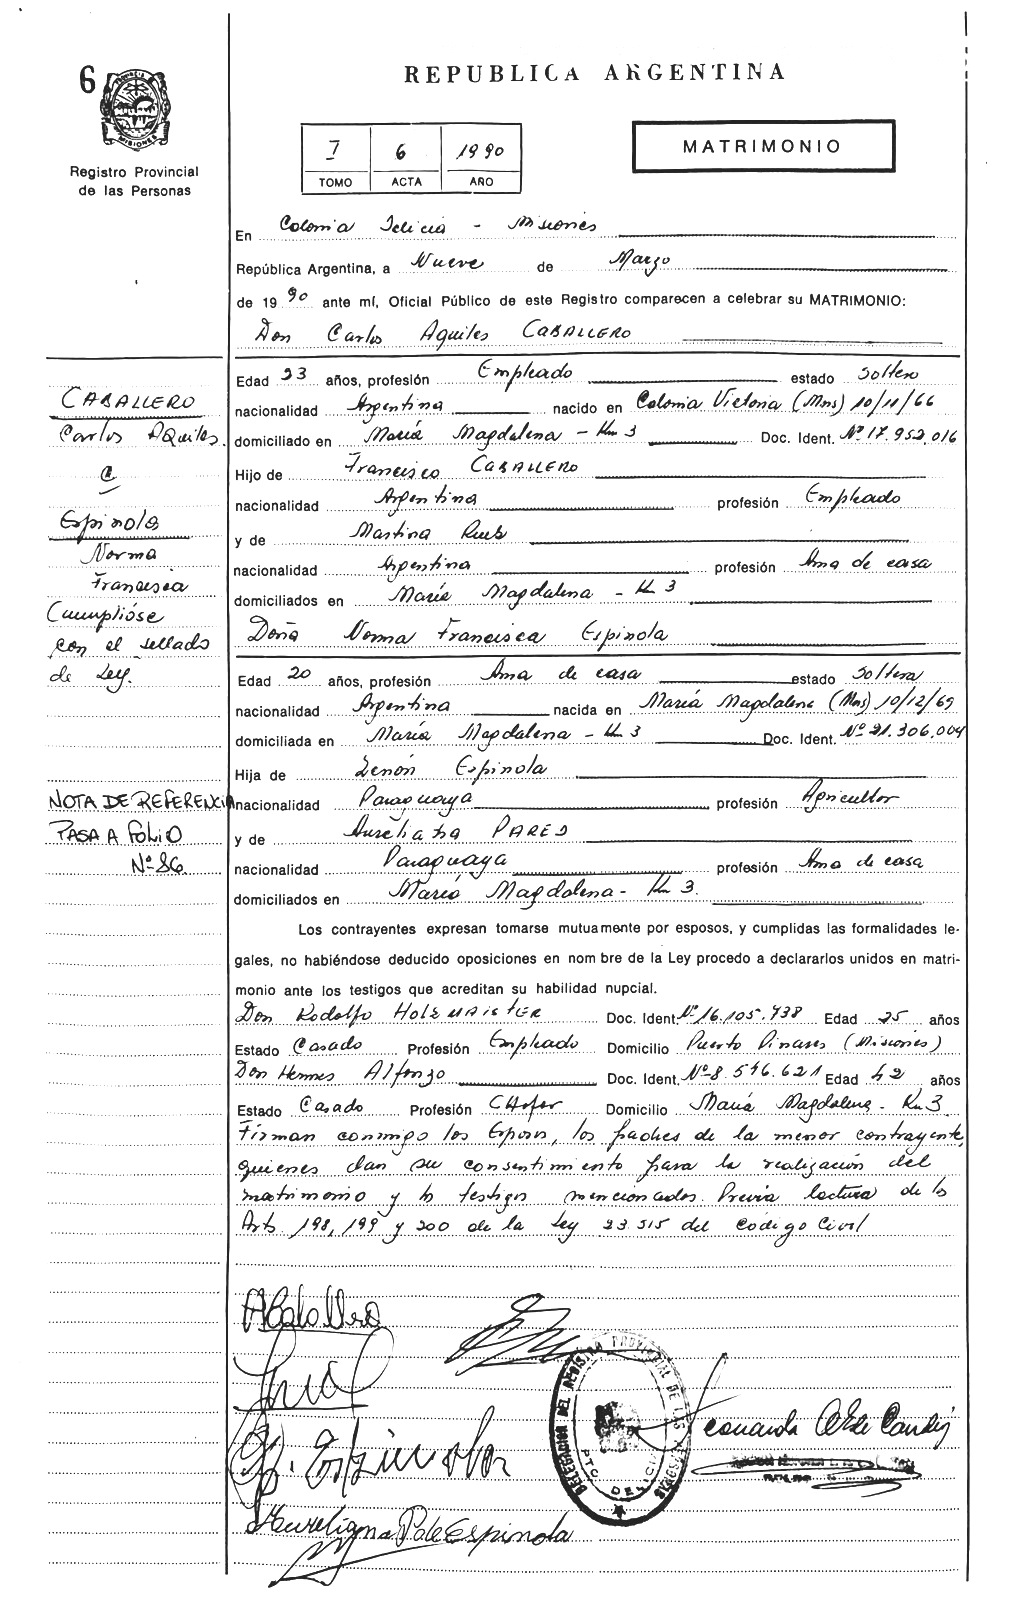 6
REPUBLICA ARGENTINA
PROVINCIA DE MISIONES
Registro Provincial
de las Personas
I 6 1990
TOMO ACTA AÑO
MATRIMONIO
En Colonia Delicia - Misiones
República Argentina, a Nueve de Marzo
de 1990 ante mí, Oficial Público de este Registro comparecen a celebrar su MATRIMONIO:
Don Carlos Aquiles CABALLERO
Edad 23 años, profesión Empleado estado Soltero
nacionalidad Argentina nacido en Colonia Victoria (Mns) 10/11/66
domiciliado en María Magdalena - Km 3 Doc. Ident. Nº 17.952.016
Hijo de Francisco CABALLERO
nacionalidad Argentina profesión Empleado
y de Martina
nacionalidad Argentina profesión Ama de casa
domiciliados en María Magdalena - Km 3
Doña Norma Francisca Espinola
Edad 20 años, profesión Ama de casa estado Soltera
nacionalidad Argentina nacida en María Magdalena (Mns) 10/12/69
domiciliada en María Magdalena - Km 3 Doc. Ident. Nº 21.306.004
Hija de Zenón Espinola
nacionalidad Paraguaya profesión Agricultor
y de PARED
nacionalidad Paraguaya profesión Ama de casa
domiciliados en María Magdalena - Km 3.
Los contrayentes expresan tomarse mutuamente por esposos, y cumplidas las formalidades le-
gales, no habiéndose deducido oposiciones en nom bre de la Ley procedo a declararlos unidos en matri-
monio ante los testigos que acreditan su habilidad nupcial.
Don Rodolfo Doc. Ident. Nº 16.105.938 Edad 25 años
Estado Casado Profesión Empleado Domicilio Puerto Pinares (Misiones)
Don Hermes Alfonzo Doc. Ident. Nº 8.546.621 Edad 42 años
Estado Casado Profesión CHofer Domicilio María Magdalena - Km 3
Firman conmigo los Esposos, los padres de la menor contrayente,
quienes dan su consentimiento para la realización del
matrimonio y los testigos mencionados. Previa lectura de los
Arts. 198, 199 y 200 de la Ley 23.515 del Código Civil
CABALLERO
Carlos AQuiles.
C
Espinola
Norma
Francisca
Cumplióse
con el sellado
de Ley.
NOTA DE REFERENCIA
PASA A FOLIO
Nº 86
ACaballero
Espinola
Aureligna P de Espinola
DELEGACION DEL REGISTRO PROVINCIAL DE LAS PERSONAS
PTO. DELICIA